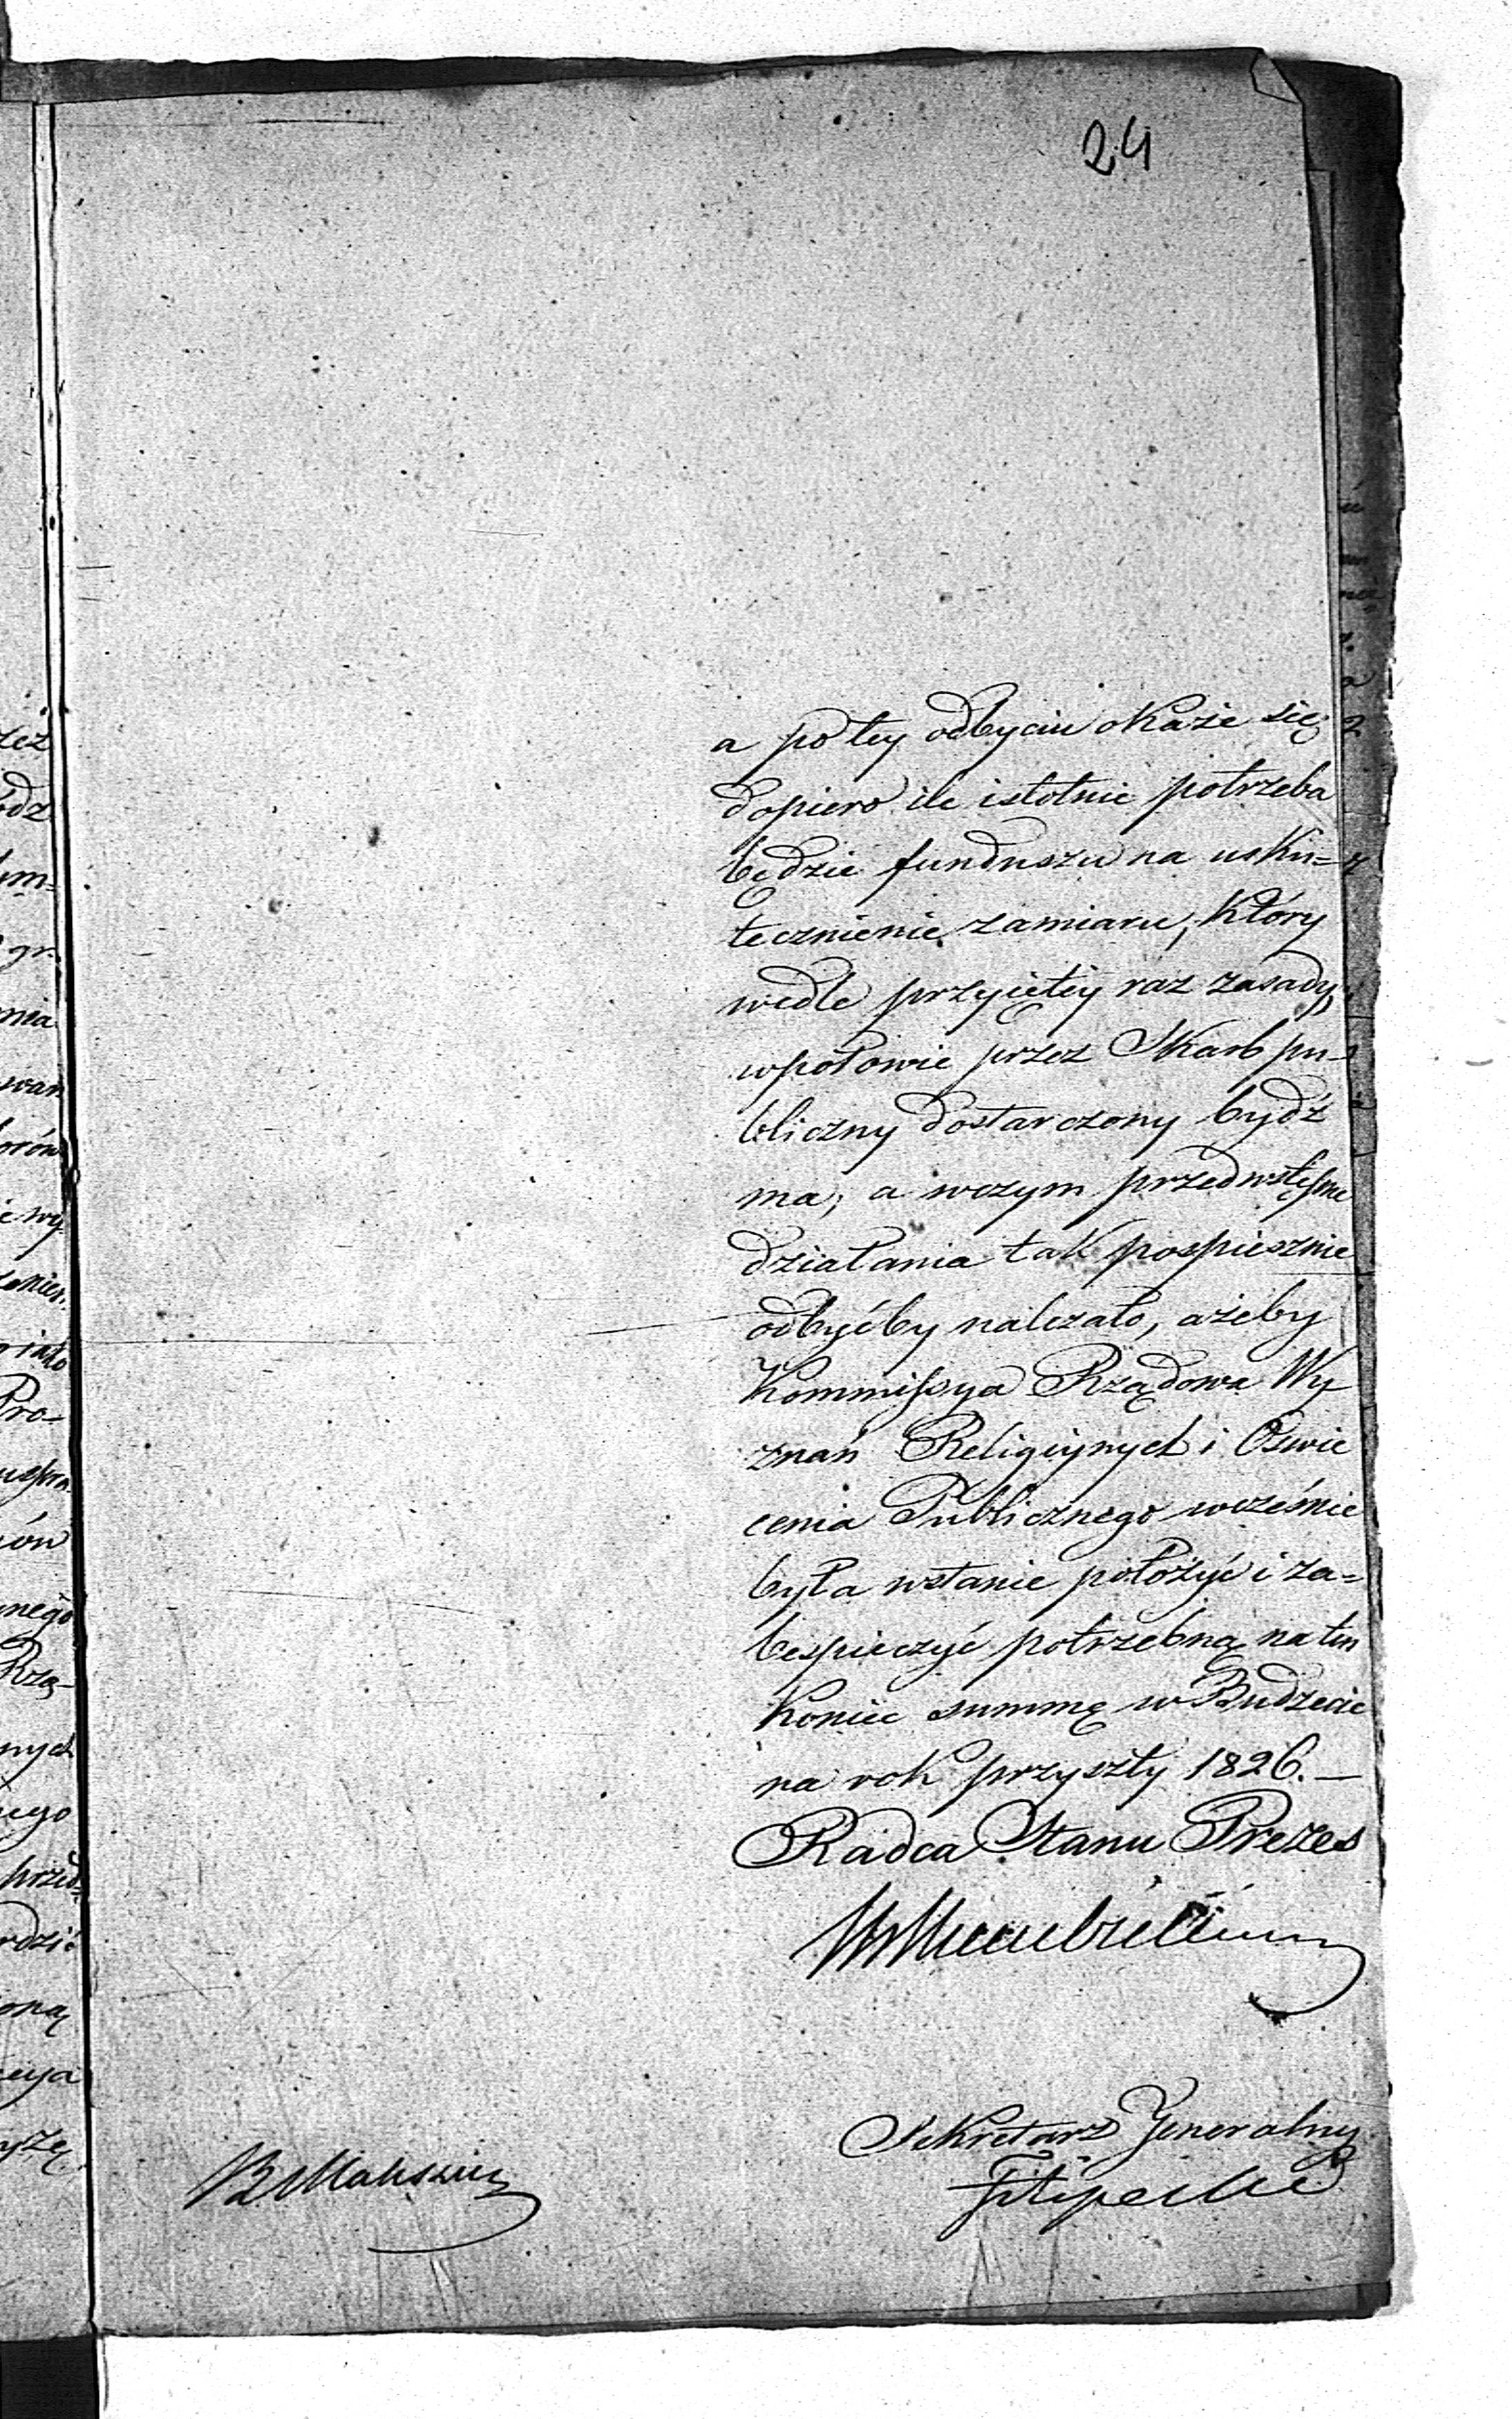 24
a po tey odbyciu okaże się
dopiero ile istotnie potrzeba
będzie funduszu na usku=
tecznienie zamiaru, który
wedle przyiętéy raz zasady,
wpołowie przez Skarb pu-
bliczny dostarczony bydź
ma, a wczym przedwstępne
działania tak pospiesznie
odbyćby należało, ażeby
Kommissya Rządowa Wy
znań Religiynych i Oświe
cenia Publicznego wcześnie
była wstanie położyć i za=
bespieczyć potrzebną na ten
koniec summę w Budżecie
na rok przyszły 1826. —
Radca Stanu Prezes
Sekretarz Jeneralny
Filipecki